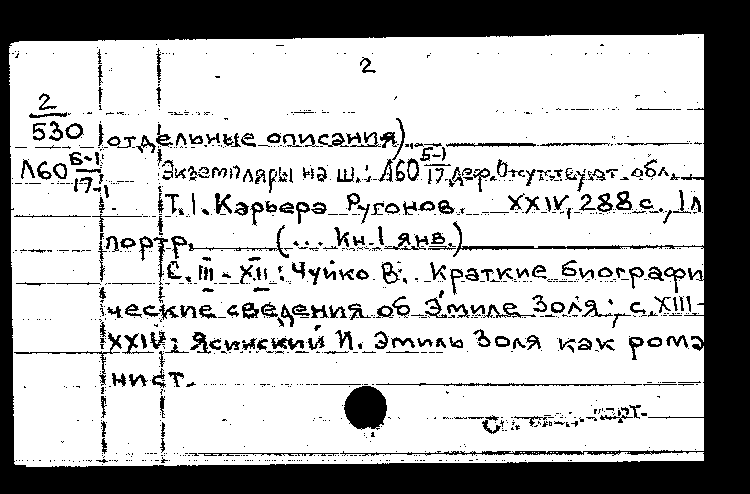 2
2
530
Л60 Б-1
17-1
отдельные описания).
Экземпляры на ш.: Л60 Б-1
17 деф. Отсутствуют обл.
Т. 1. Карьера Ругонов. XXIV, 288 с., 1 л
портр. (... Кн. 1 янв.)
С. III - XII: Чуйко В. Краткие биографи
ческие сведения об Эмиле Золя; с. XIII-
XXIV: Ясинский И. Эмиль Золя как рома
нист.